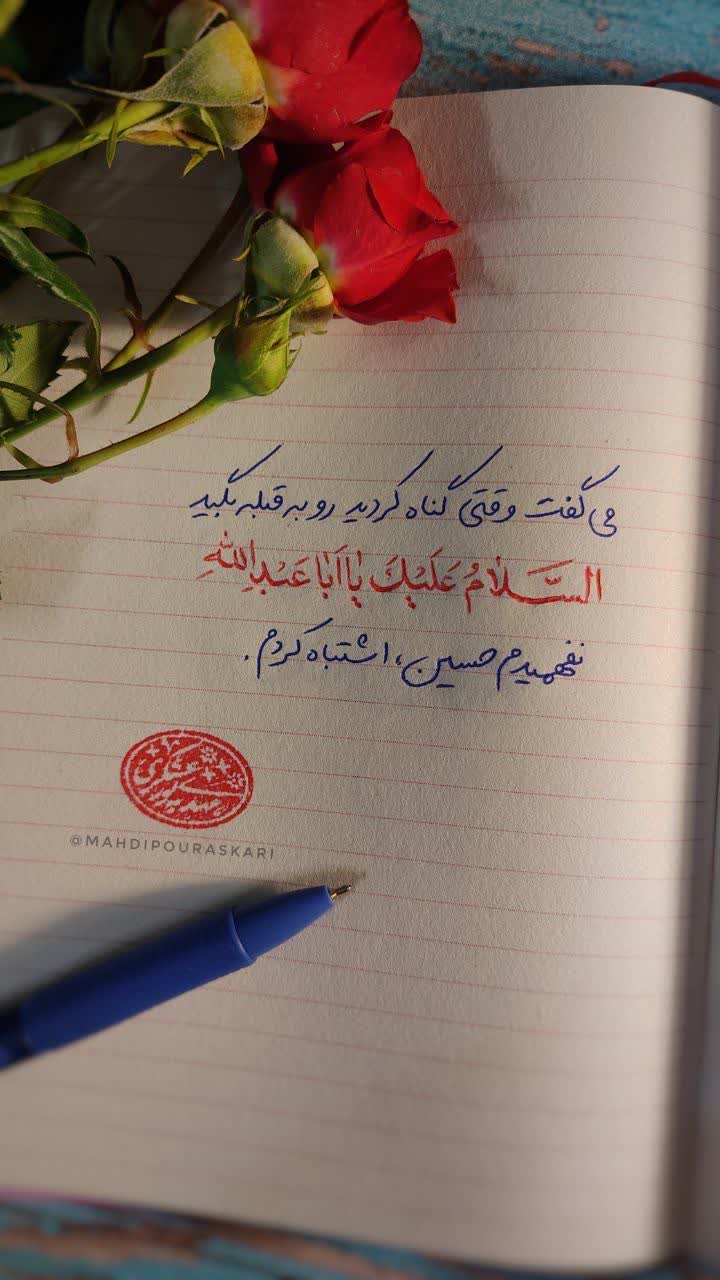 می‌گفت وقتی گناه کردید رو به قبله بگید
السَّلٰامُ عَلَیْكَ یٰا اَبٰا عَبْدِاللهِ
نفهمیدم حسین، اشتباه کردم.
@MAHDIPOURASKARI